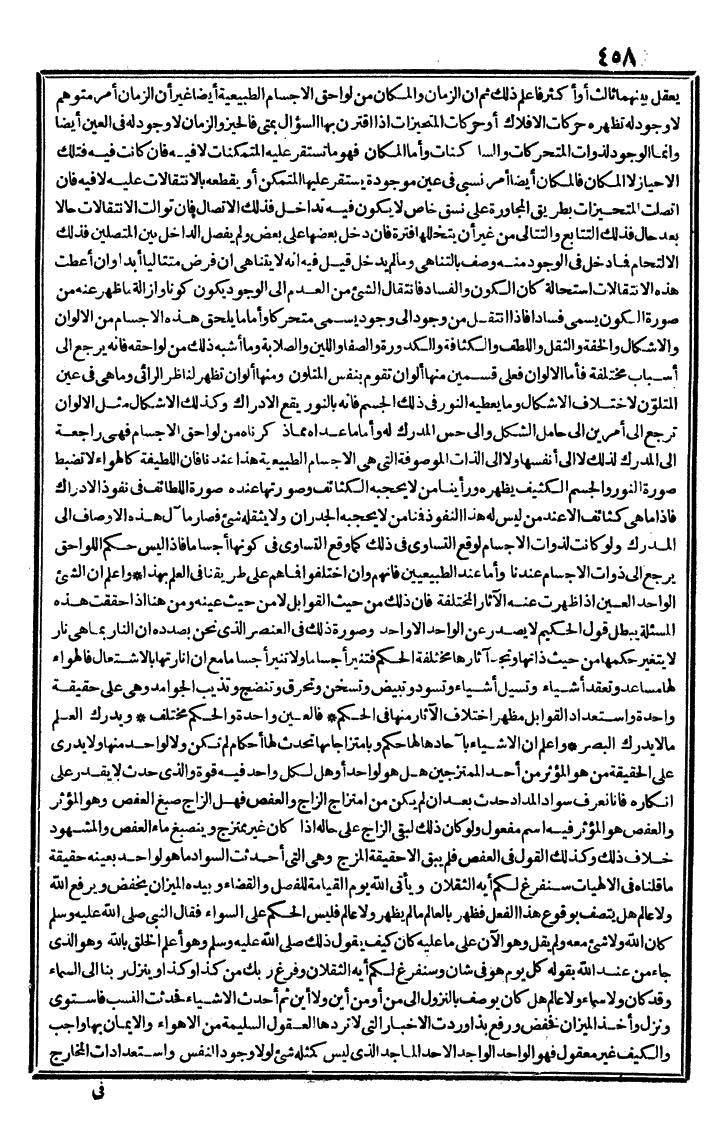 ٤٥٨
يعقل بينهما ثالث أو أكثر فاعلم ذلك ثم ان الزمان والمكان من لواحق الاجسام الطبيعية أيضا غير أن الزمان أمر متوهم
لا وجود له تظهره حركات الافلاك أو حركات المتحيزات اذا اقترن بها السؤال بمتى فالحيز والزمان لا وجود له فى العين أيضا
وانما الوجود لذوات المتحركات والسا كنات وأما المكان فهو ما تستقر عليه المتمكنات لا فيه فان كانت فيه فتلك
الاحياز لا المكان فالمكان أيضا أمر نسبي فى عين موجودة يستقر عليها المتمكن أو يقطعه بالانتقالات عليه لا فيه فان
اتصلت المتحيزات بطريق المجاورة على نسق خاص لا يكون فيه تداخل فذلك الاتصال فان توالت الانتقالات حالا
بعد حال فذلك التتابع والتتالى من غير أن يتخللها فترة فان دخل بعضها على بعض ولم يفصل الداخل بين المتصلين فذلك
الالتحام فما دخل فى الوجود منه وصف بالتناهى وما لم يدخل قيل فيه انه لا يتناهى ان فرض متتاليا أبدا وان أعطت
هذه الانتقالات استحالة كان الكون والفساد فانتقال الشئ من العدم الى الوجود يكون كونا وازالة ما ظهر عنه من
صورة الكون يسمى فسادا فاذا انتقل من وجود الى وجود يسمى متحركا وأما ما يلحق هذه الاجسام من الالوان
والاشكال والخفة والثقل واللطف والكثافة والكدورة والصفا واللين والصلابة وما أشبه ذلك من لواحقه فانه يرجع الى
أسباب مختلفة فأما الالوان فعلى قسمين منها ألوان تقوم بنفس المتلون ومنها ألوان تظهر لناظر الرائى وما هى فى عين
المتلوّن لاختلاف الاشكال وما يعطيه النور فى ذلك الجسم فانه بالنور يقع الادراك وكذلك الاشكال مثل الالوان
ترجع الى أمرين الى حامل الشكل والى حس المدرك له وأما ما عداه مماذ كرناه من لواحق الاجسام فهى راجعة
الى المدرك لذلك لا الى أنفسها ولا الى الذات الموصوفة التى هى الاجسام الطبيعية هذا عندنا فان اللطيفة كالهواء لا تضبط
صورة النور والجسم الكثيف يظهره ورأينا من لا يحجبه الكثائف وصورتها عنده صورة اللطائف فى نفوذ الادراك
فاذا ما هى كثائف الا عند من ليس له هذا النفوذ فنا من لا يحجبه الجدران ولا يثقله شئ فصار مآل هذه الاوصاف الى
المدرك ولو كانت لذوات الاجسام لوقع التساوى فى ذلك كما وقع التساوى فى كونها أجساما فاذا ليس حكم اللواحق
يرجع الى ذوات الاجسام عندنا وأما عند الطبيعيين فانهم وان اختلفوا فاهم على طريقنا فى العلم بهذا * واعلم ان الشئ
الواحد العين اذا ظهرت عنه الآثار المختلفة فان ذلك من حيث القوابل لا من حيث عينه ومن هنا اذا حققت هذه
المسئلة يبطل قول الحكيم لا يصدر عن الواحد الا واحد وصورة ذلك فى العنصر الذى نحن بصدده ان النار بما هى نار
لا يتغير حكمها من حيث ذاتها وتجد آثارها مختلفة الحكم فتنير أجساما ولا تنير أجساما مع ان انارتها بالاشتعال فالهواء
لها مساعد وتعقد أشياء وتسيل أشياء وتسود وتبيض وتسخن وتحرق وتنضج وتذيب الجوامد وهى على حقيقة
واحدة واستعداد القوابل مظهر اختلاف الآثار منها فى الحكم * فالعين واحدة والحكم مختلف * ويدرك العلم
ما لا يدرك البصر * واعلم ان الاشياء بآحادها لها حكم وبامتزاجها تحدث لها أحكام لم تكن ولا لواحد منها ولا يدرى
على الحقيقة من هو المؤثر من أحد الممتزجين هل هو لواحد أو هل لكل واحد فيه قوة والذى حدث لا يقدر على
انكاره فانا نعرف سواد المداد حدث بعد ان لم يكن من امتزاج الزاج والعفص فهل الزاج صبغ العفص وهو المؤثر
والعفص هو المؤثر فيه اسم مفعول ولو كان ذلك لبقى الزاج على حاله اذا كان غير ممتزج وينصبغ ماء العفص والمشهود
خلاف ذلك وكذلك القول فى العفص فلم يبق الا حقيقة المزج وهى التى أحدثت السواد ما هو لواحد بعينه حقيقة
ما قلناه فى الالهيات سنفرغ لكم أيه الثقلان ويأتى الله يوم القيامة للفصل والقضاء وبيده الميزان يخفض ويرفع الله
ولا عالم هل يتصف بوقوع هذا الفعل فظهر بالعالم ما لم يظهر ولا عالم فليس الحكم على السواء فقال النبى صلى الله عليه وسلم
كان الله ولا شئ معه ولم يقل وهو الآن على ما عليه كان كيف يقول ذلك صلى الله عليه وسلم وهو أعلم الخلق بالله وهو الذى
جاء من عند الله بقوله كل يوم هو فى شان وسنفرغ لكم أيه الثقلان وفرغ ربك من كذا وكذا وينزل ربنا الى السماء
وقد كان ولا سماء ولا عالم هل كان يوصف بالنزول الى من أو من أين ولا أين ثم أحدث الاشياء فحدثت النسب فاستوى
ونزل وأخذ الميزان فخفض ورفع بذا وردت الاخبار التى لا تردها العقول السليمة من الاهواء والايمان بها واجب
والكيف غير معقول فهو الواحد الواجد الاحد الماجد الذى ليس كمثله شئ لولا وجود النفس واستعدادات المخارج
فى